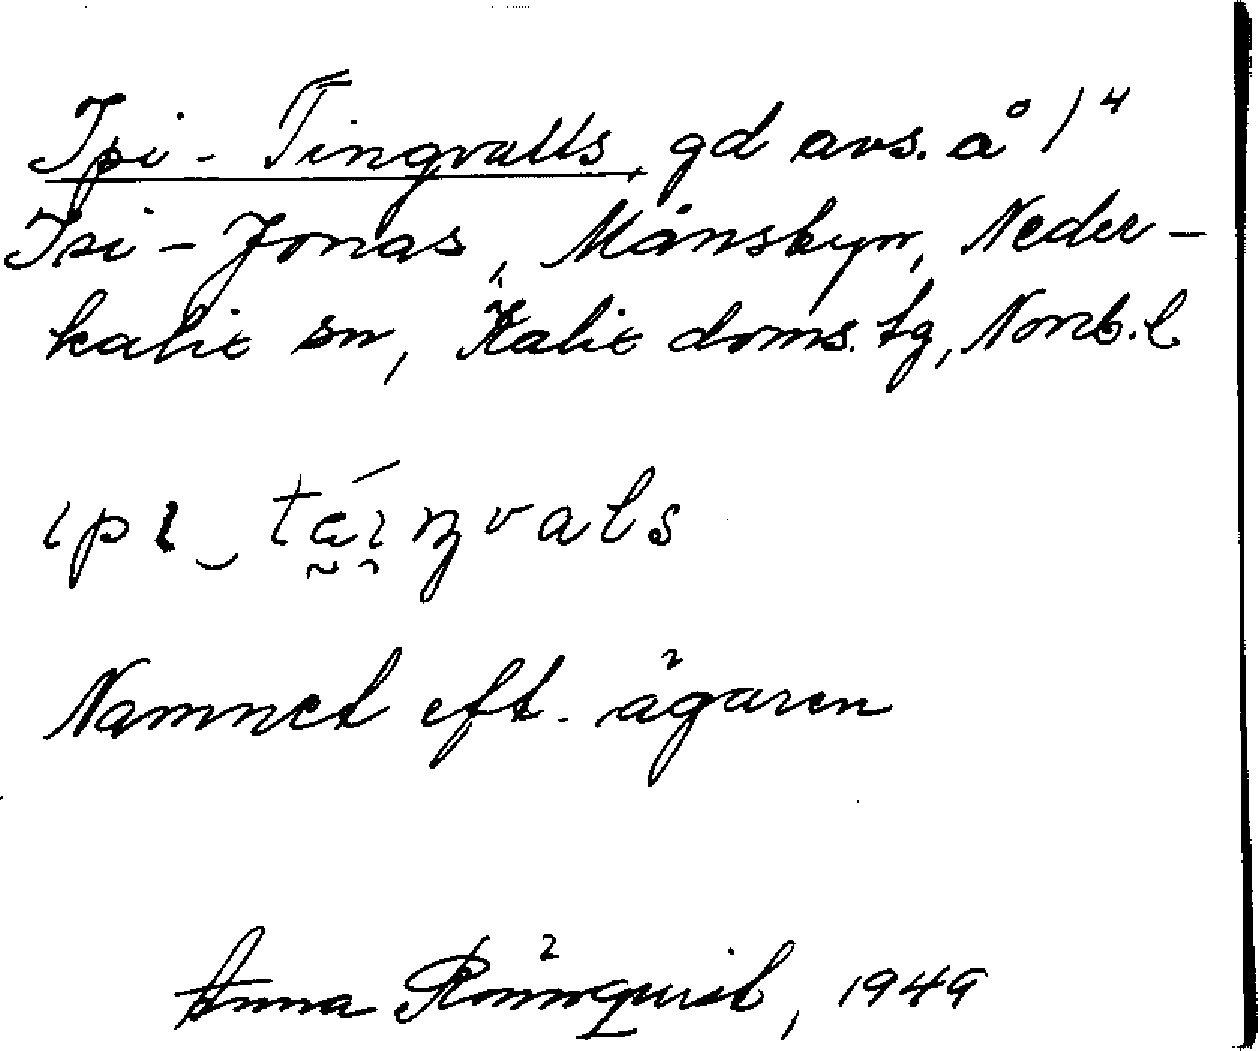 Ipi-Tingvalls, gd avs. å 1⁴
Isi-Jonas, Månsbyn, Neder-
kalix sn, Kalix doms. tg, Norrb. l
ipi‿tǽ̰i̯ŋvals
Namnet eft. ägaren
Anna Rönnquist, 1949